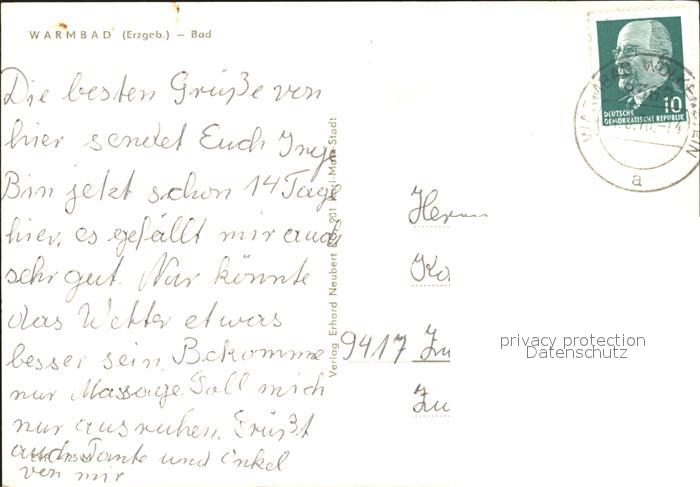 WARMBAD (Erzgeb.) – Bad
Die besten Grüße von
hier sendet Euch Inge
Bin jetzt schon 14 Tage
hier, es gefällt mir auch
sehr gut. Nur könnte
das Wetter etwas
besser sein. Bekomme
nur Massage Soll mich
nur ausruhen. Grüßt
auch Tante und Onkel
von mir
Verlag Erhard Neubert KG, 901 Karl-Marx-Stadt
10
DEUTSCHE
DEMOKRATISCHE REPUBLIK
WARMBAD WOLKENSTEIN
a
Herrn
Ko
9417 Zw
Zw
privacy protection
Datenschutz